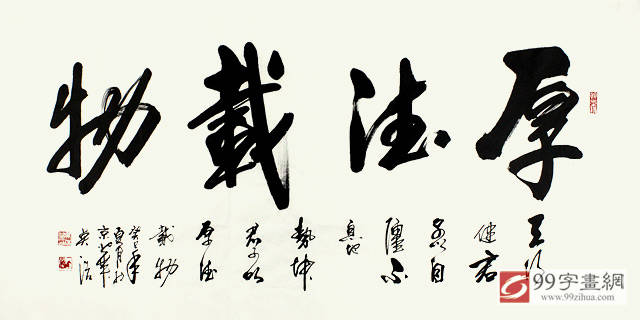 厚德載物
天行
健君
子以自
彊不
息地
勢坤
君子以
厚德
載物
癸巳年
夏月於
99字畫網
www.99zihua.com